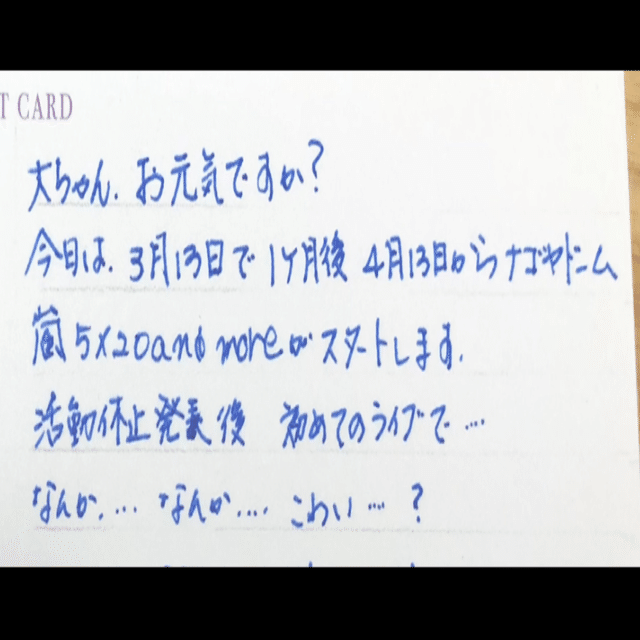 T CARD
大ちゃん、お元気ですか?
今日は、3月13日で 1ヶ月後 4月13日からナゴヤドーム
嵐 5×20 and moreがスタートします。
活動休止発表後 初めてのライブで…
なんか…. なんか…. こわい…?